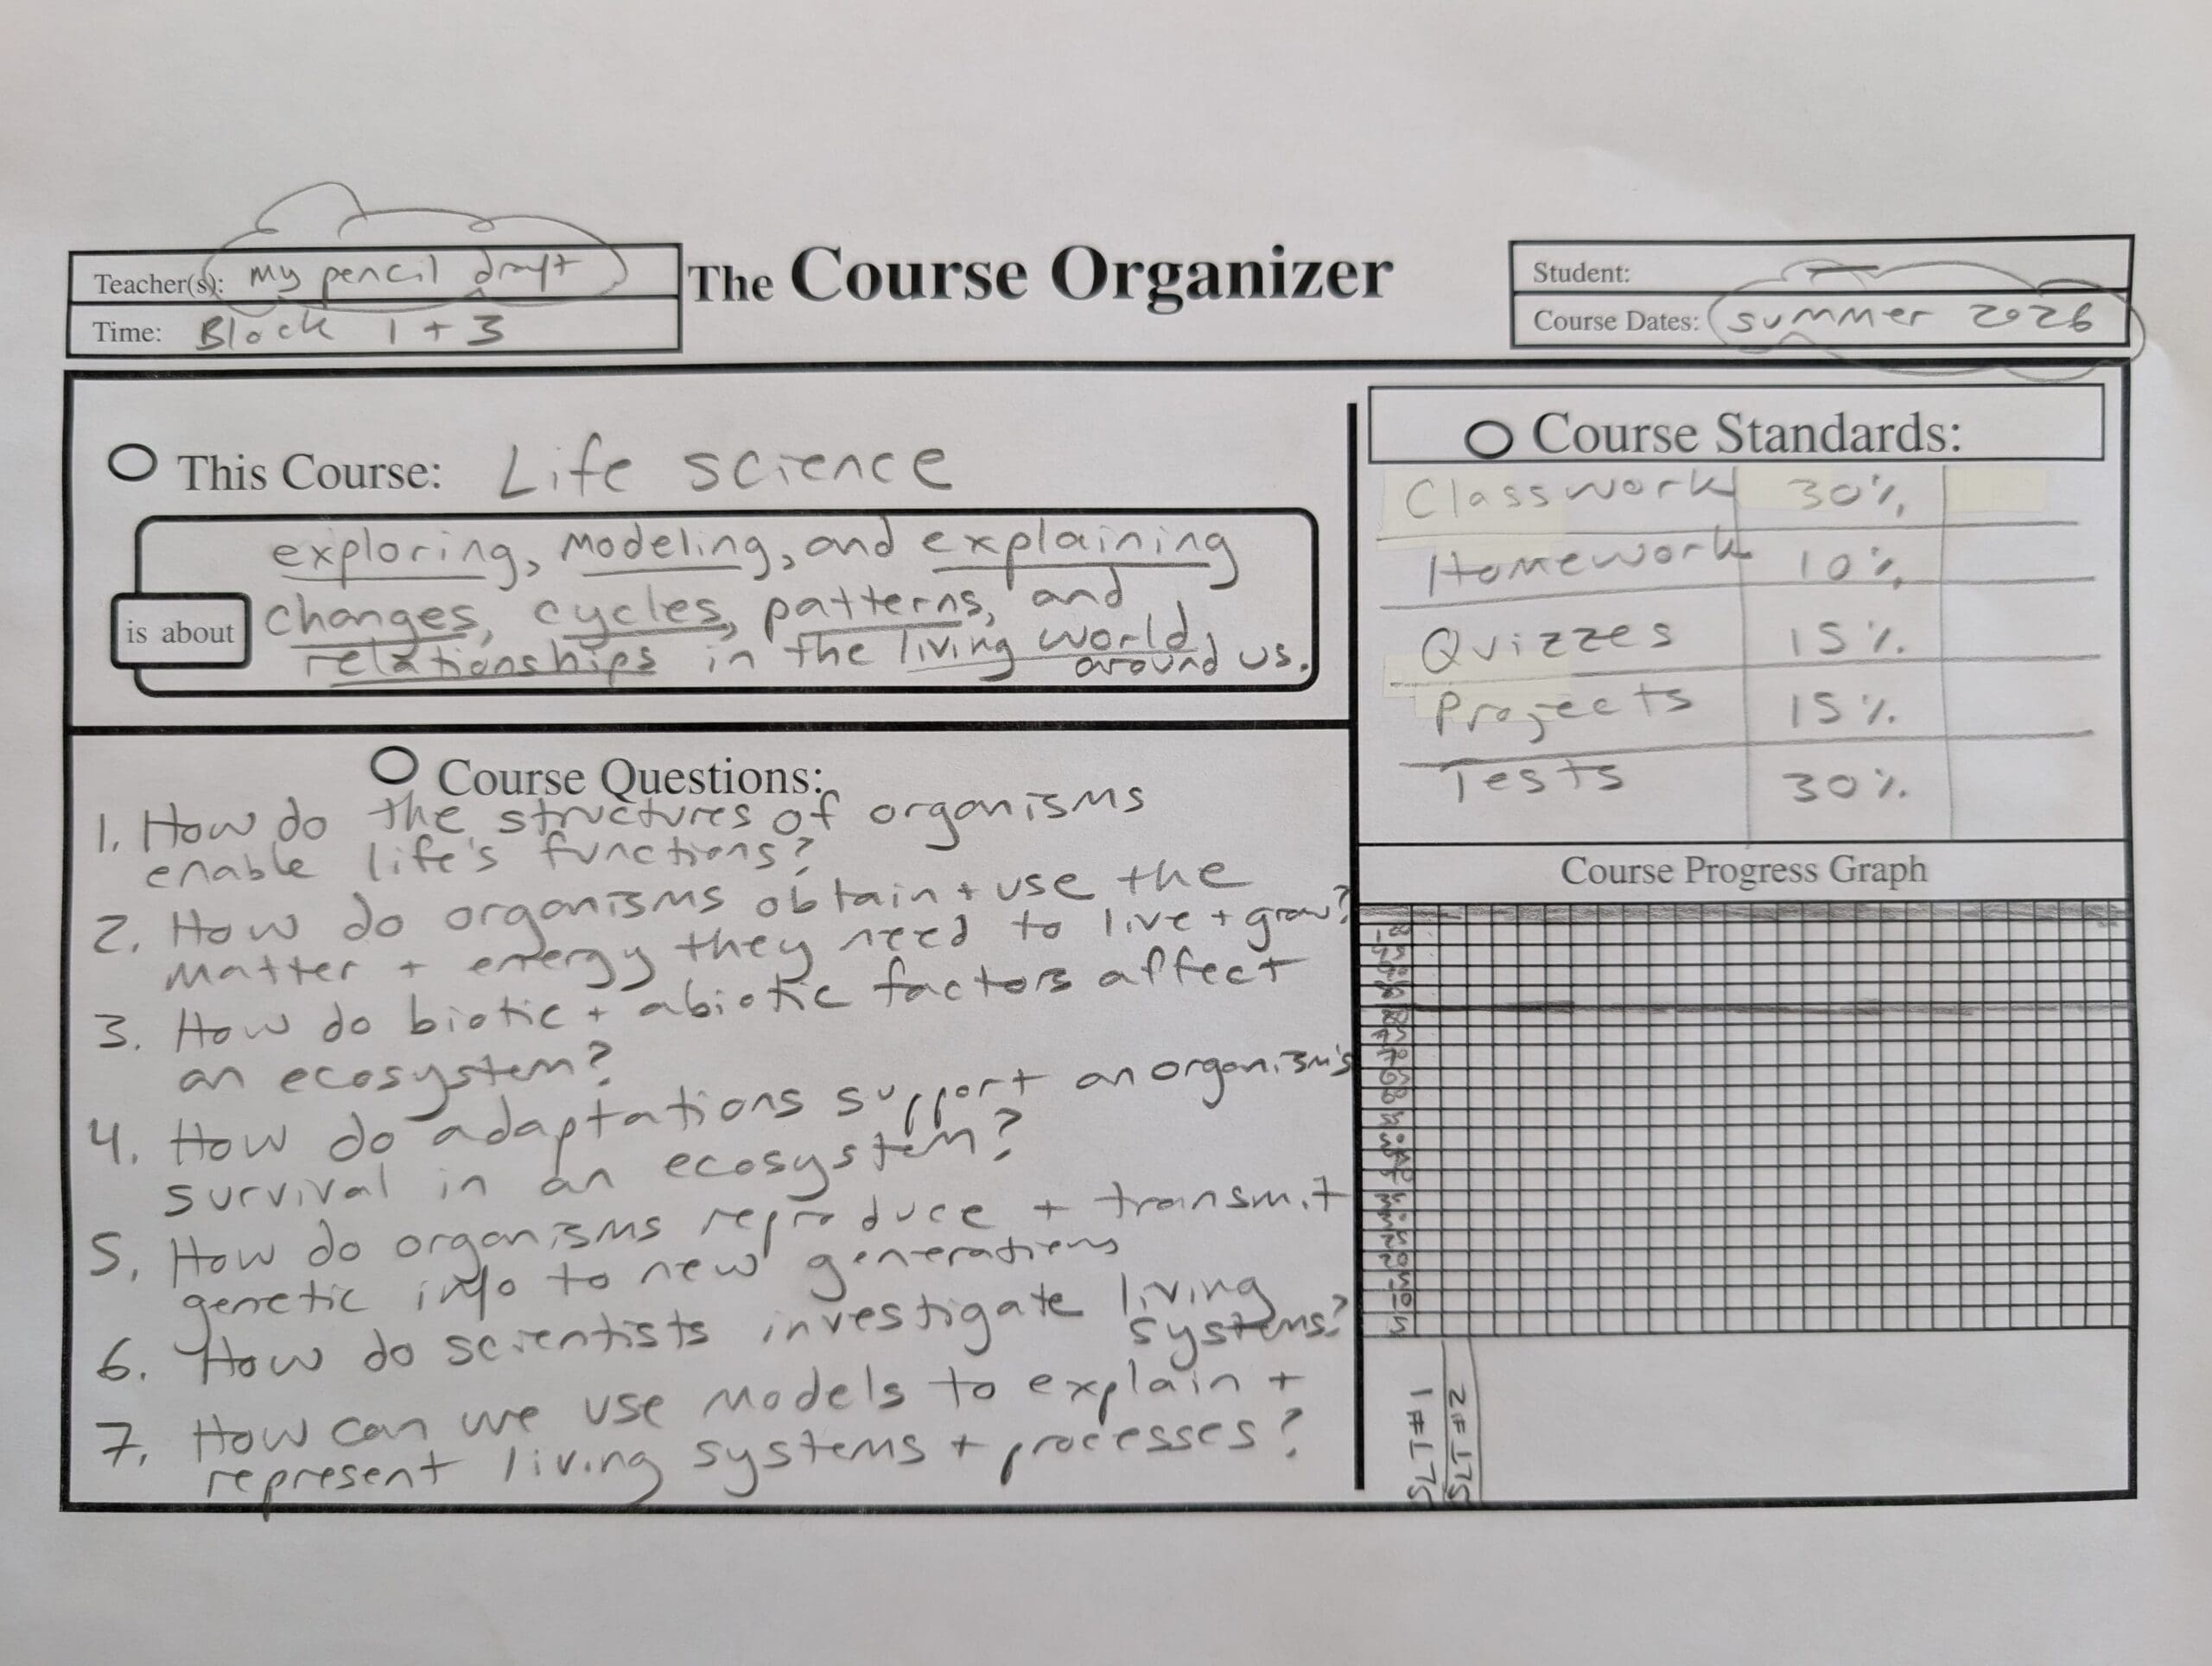 Teacher(s): my pencil draft
Time: Block 1 + 3
The Course Organizer
Student: —
Course Dates: summer 2026
This Course: Life science
is about
exploring, modeling, and explaining
changes, cycles, patterns, and
relationships in the living world
around us.
Course Questions:
1. How do the structures of organisms
enable life's functions?
2. How do organisms obtain + use the
matter + energy they need to live + grow?
3. How do biotic + abiotic factors affect
an ecosystem?
4. How do adaptations support an organism's
survival in an ecosystem?
5. How do organisms reproduce + transmit
genetic info to new generations
6. How do scientists investigate living
systems?
7. How can we use models to explain +
represent living systems + processes?
Course Standards:
Classwork 30%
Homework 10%
Quizzes 15%
Projects 15%
Tests 30%
Course Progress Graph
SLT#1
SLT#2